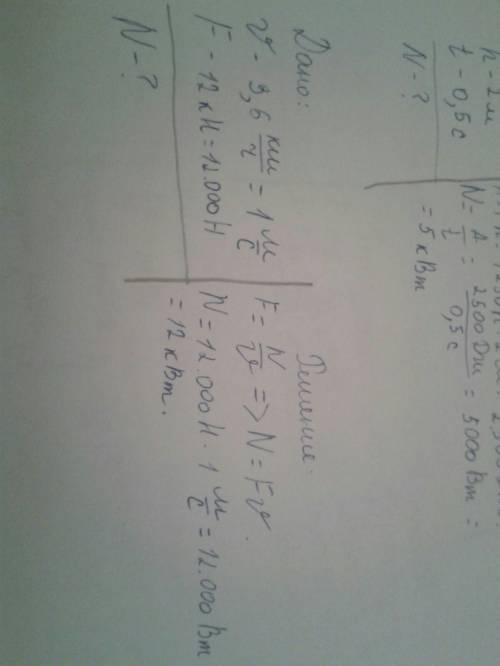 h - 2 м
t - 0,5 с
N - ?
N = A/t = 2500 Дж/0,5 с = 5000 Вт =
= 5 кВт
Дано:
v - 3,6 км/ч = 1 м/с
F - 12 кН = 12.000 Н
N - ?
Решение.
F = N/v => N = Fv.
N = 12.000 Н · 1 м/с = 12.000 Вт
= 12 кВт.